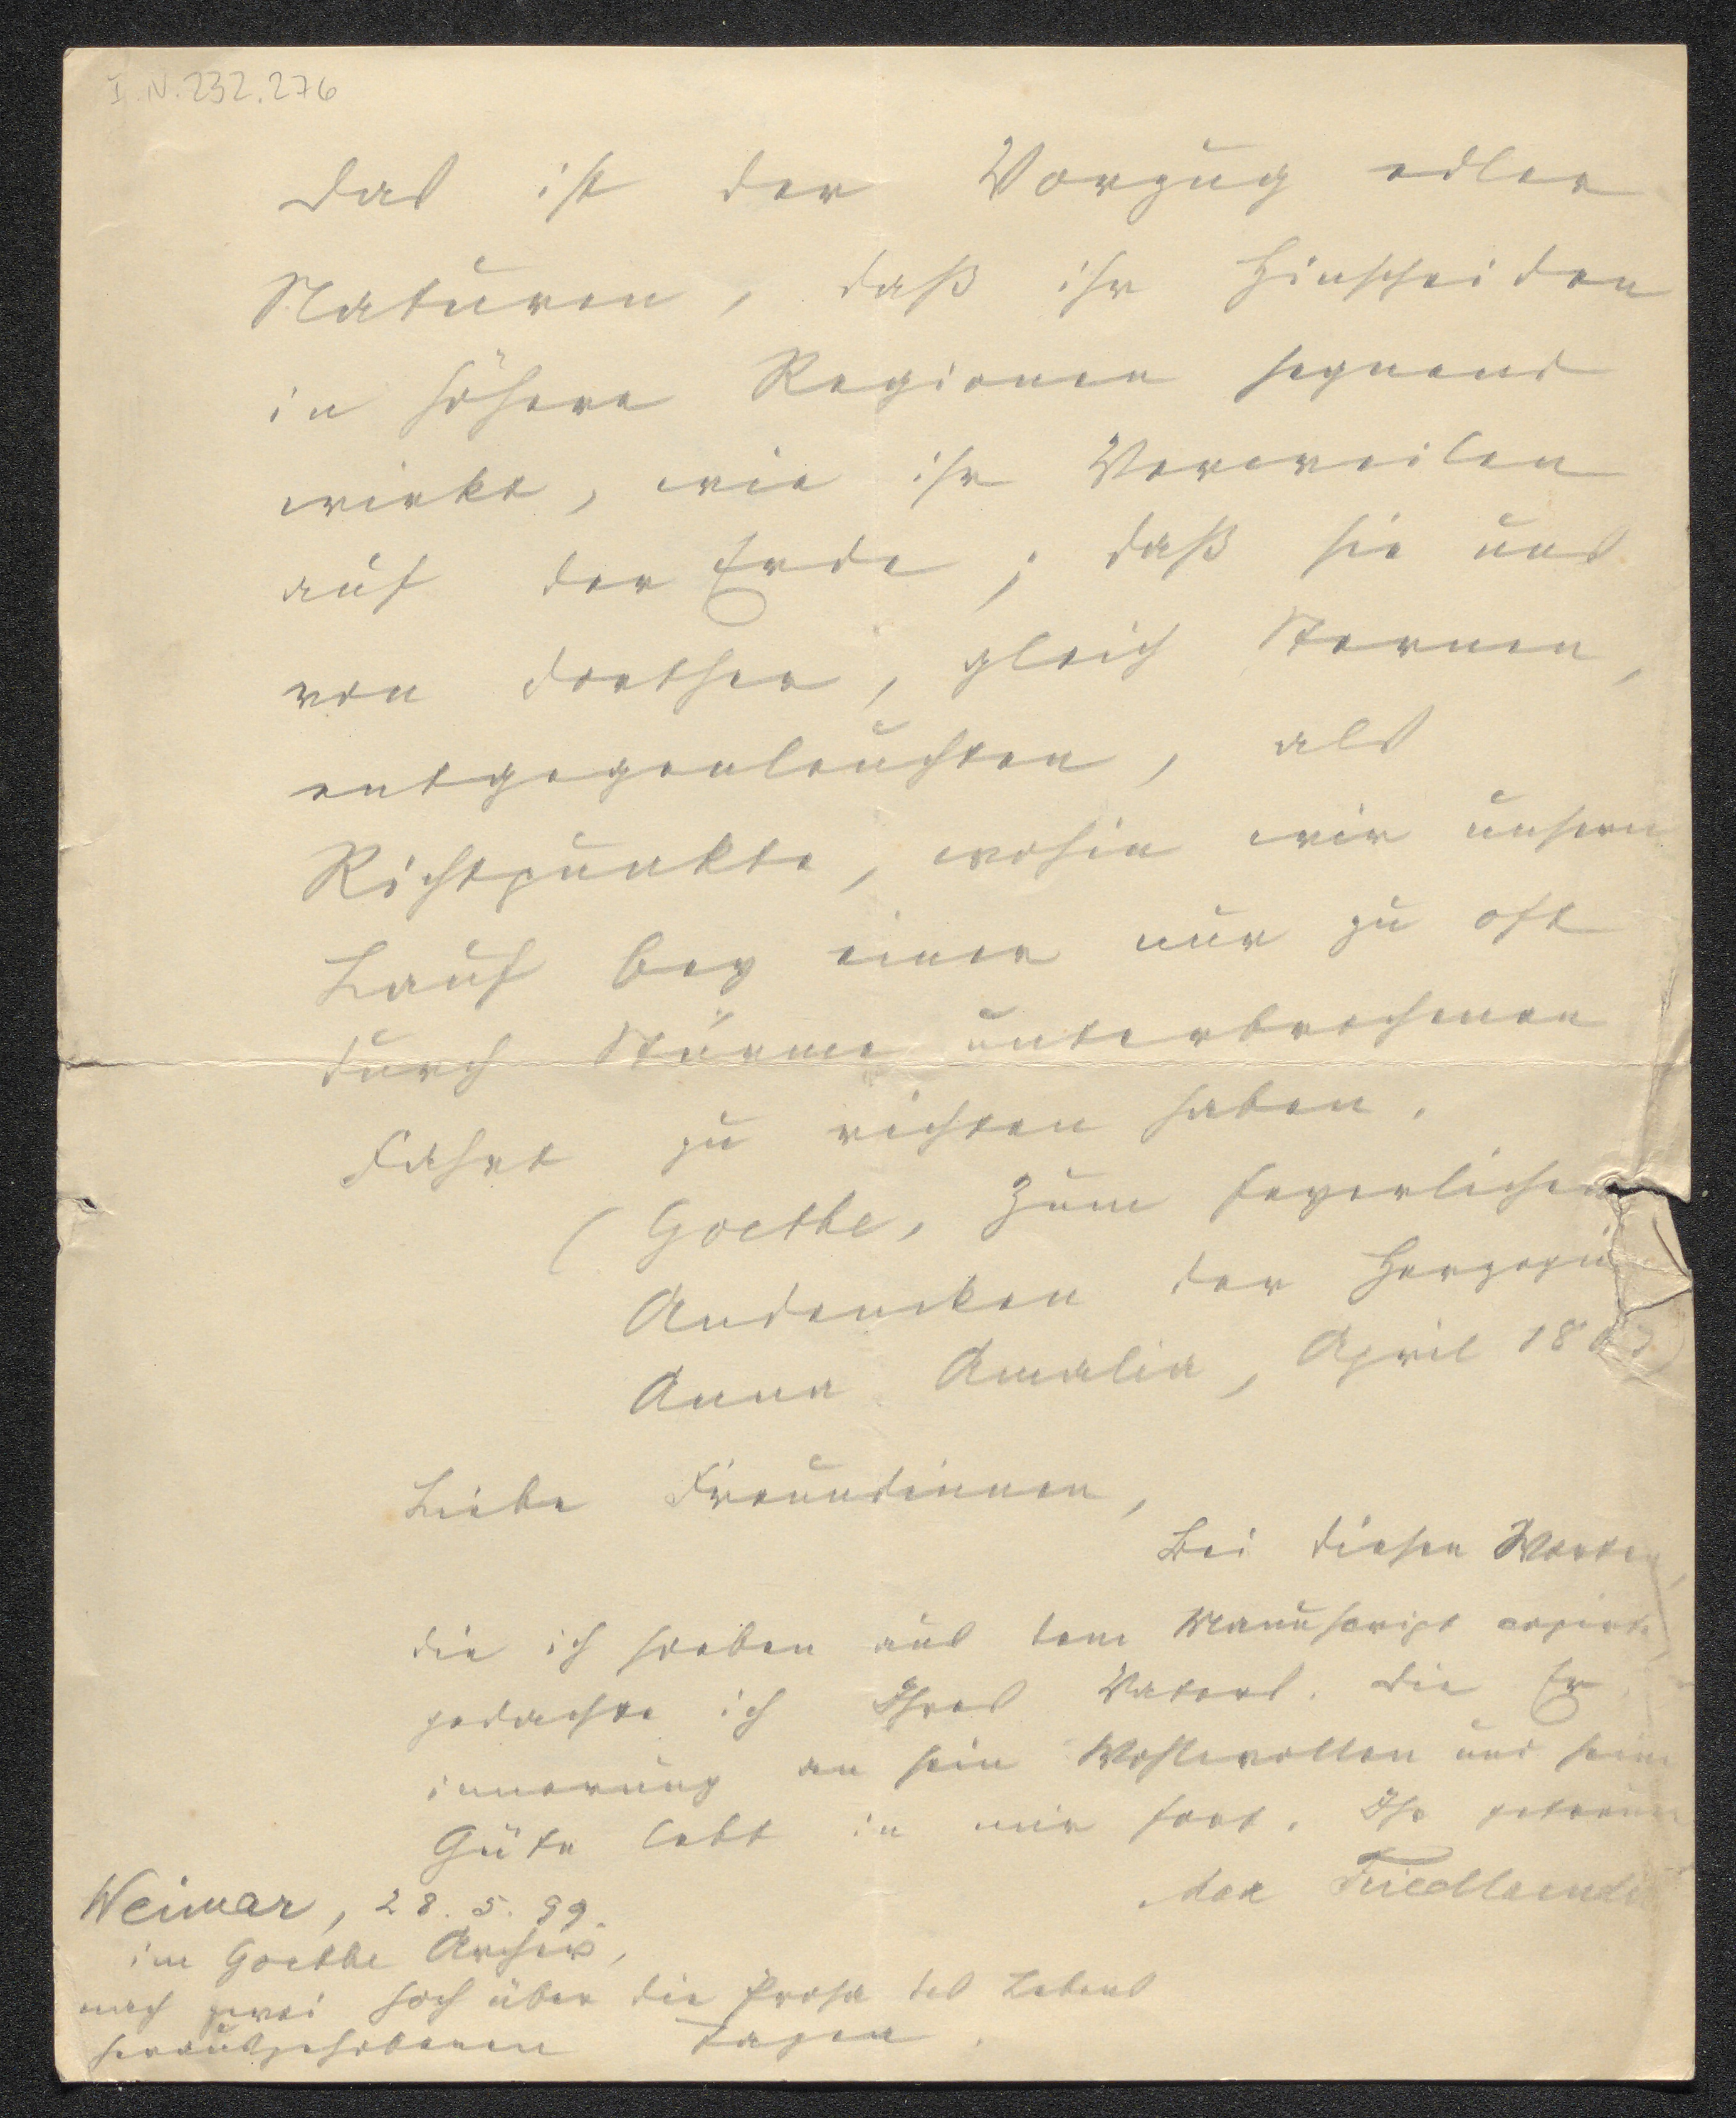 I.N. 232.276
Das ist der Vorzug edler
Naturen, daß ihr Hinscheiden
in höhere Regionen segnend
wirkt, wie ihr Verweilen
auf der Erde; daß sie uns
von dorther, gleich Sternen,
entgegenleuchten, als
Richtpunkte, wohin wir unsern
Lauf bey einer nur zu oft
durch Stürme unterbrochenen
Fahrt zu richten haben.
(Goethe, Zum feyerlichen
Andencken der Herzogin
Anna Amalia, April 1807)
Liebe Freundinnen,
Bei diesen Worten,
die ich soeben aus dem Manuscript copirte,
gedachte ich Ihres Vaters. Die Er
innerung an sein Wohlwollen und seine
Güte lebt in mir fort. Ihr getreuer
Max Friedlaender
Weimar, 28. 5. 99.
im Goethe Archiv,
nach zwei hoch über die Prosa des Lebens
heraus gehobenen Tagen.